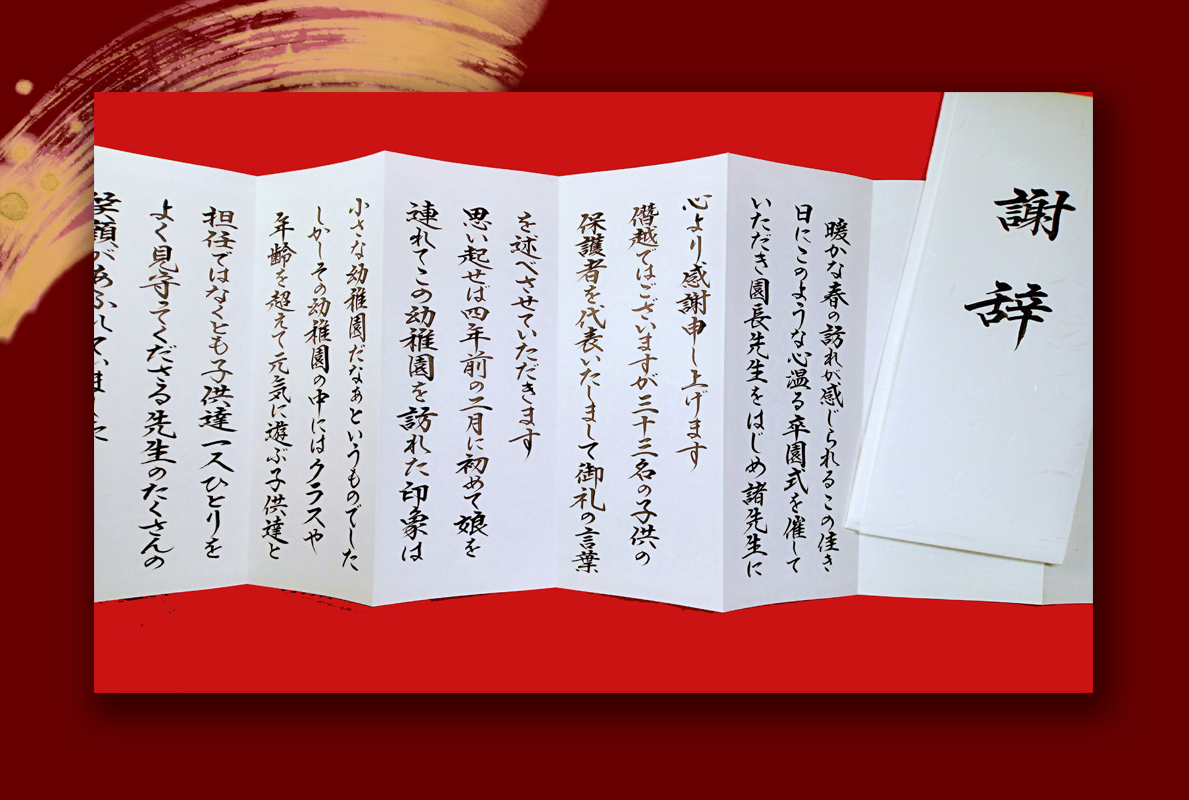 謝辞
暖かな春の訪れが感じられるこの佳き
日にこのような心温る卒園式を催して
いただき園長先生をはじめ諸先生に
心より感謝申し上げます
僭越ではございますが三十三名の子供の
保護者を代表いたしまして御礼の言葉
を述べさせていただきます
思い起せば四年前の二月に初めて娘を
連れてこの幼稚園を訪れた印象は
小さな幼稚園だなぁというものでした
しかしその幼稚園の中にはクラスや
年齢を超えて元気に遊ぶ子供達と
担任ではなくとも子供達一人ひとりを
よく見守ってくださる先生のたくさんの
笑顔があふれていました